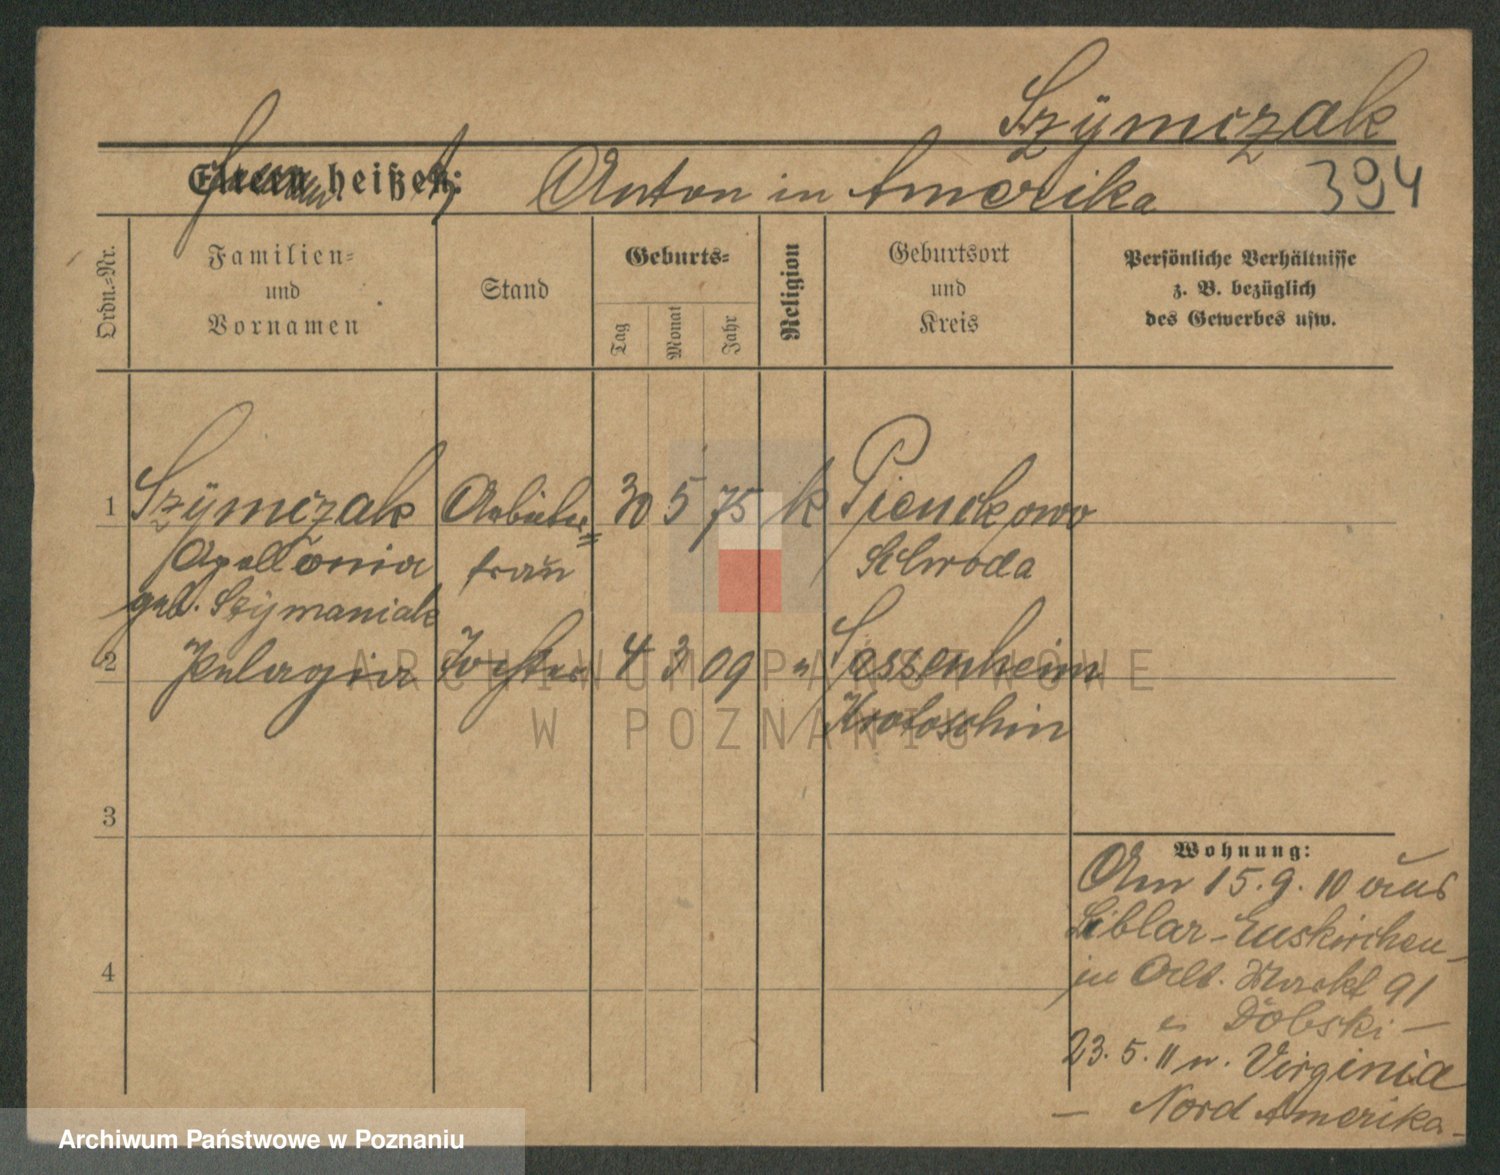 Szymczak
Eltern heißen: Anton in Amerika 394
Ordn.-Nr.
Familien-
und
Vornamen
Stand
Geburts-
Tag
Monat
Jahr
Religion
Geburtsort
und
Kreis
Persönliche Verhältnisse
z. B. bezüglich
des Gewerbes usw.
1 Szymczak Arbeiter 30 5 75 k Pienckowo
Apollonia frau Schroda
geb. Szymaniak
2 Pelagia Tochter 4 3 09 " Sossenheim
Krotoschin
3
4
Wohnung:
Am 15.9.10 aus
Liblar-Euskirchen
in Alt. Markt 91
Dobski -
23.5.11 n. Virginia
- Nord Amerika -
ARCHIWUM PAŃSTWOWE
W POZNANIU
Archiwum Państwowe w Poznaniu